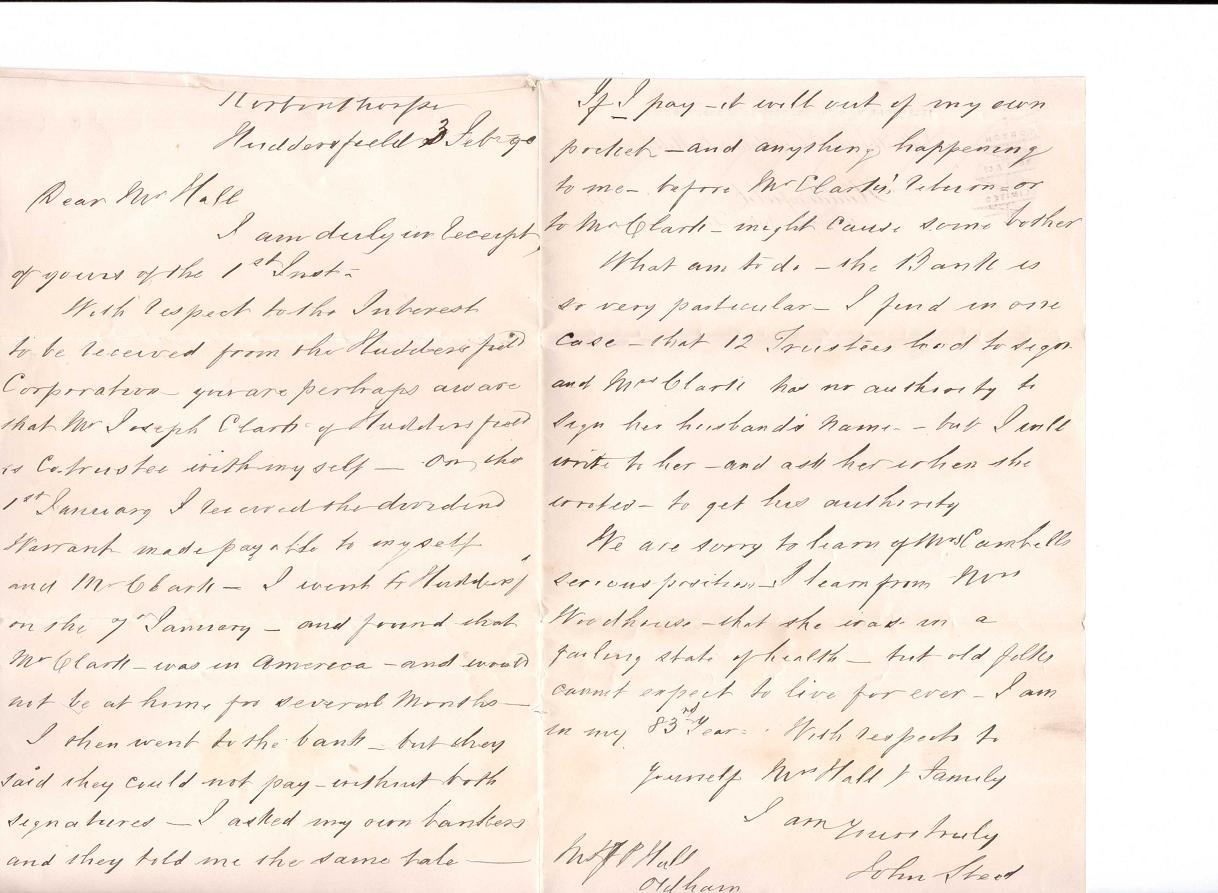 Huddersfield 3 Feby 90
Dear Mr Hall
I am duly in receipt,
of yours of the 1st Inst-
With respect to the Interest
to be received from the Huddersfield
Corporation - you are perhaps aware
that Mr Joseph Clark of Huddersfield
is Co-trustee with myself - On the
1st January I received the dividend
Warrant made payable to myself
and Mr Clark - I went to Huddersfd
on the 7th January - and found that
Mr Clark - was in America - and would
not be at home for several Months -
I then went to the bank - but they
said they could not pay - without both
signatures - I asked my own bankers
and they told me the same tale -
If I pay - it will out of my own
pocket - and anything happening
to me - before Mr Clark's return - or
to Mr Clark - might cause some bother
What am to do - the Bank is
so very particular - I find in one
case - that 12 Trustees had to sign
and Mrs Clark has no authority to
sign her husband's name - but I will
write to her - and ask her when she
writes - to get his authority
We are sorry to learn of Mrs Cambells
serious position - I learn from Mrs
Woodhouse - that she was in a
failing state of health - but old folks
cannot expect to live for ever - I am
in my 83rd Year - With respects to
yourself Mrs Hall & Family
I am yours truly
John Steed
Mr Hall
Oldham